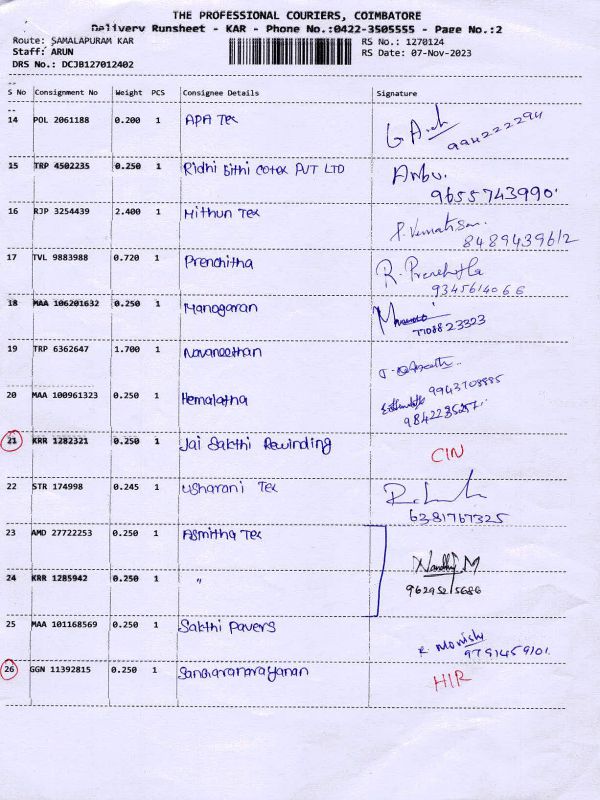 THE PROFESSIONAL COURIERS, COIMBATORE
Delivery Runsheet - KAR - Phone No.:0422-3505555 - Page No.:2
Route: SAMALAPURAM KAR RS No.: 1270124
Staff: ARUN RS Date: 07-Nov-2023
DRS No.: DCJB127012402
S No Consignment No Weight PCS Consignee Details Signature
14 POL 2061188 0.200 1 APA Tex
994222294
15 TRP 4502235 0.250 1 Ridhi Sithi Cotex PVT LTD Anbu.
9655743990.
16 RJP 3254439 2.400 1 Mithun Tex
8489439612
17 TVL 9883988 0.720 1 Prenchitha
9345614066
18 MAA 106201632 0.250 1 Manogaran
7708823323
19 TRP 6362647 1.700 1 Navaneethan
9943708885
20 MAA 100961323 0.250 1 Hemalatha
21 KRR 1282321 0.250 1 Jai Sakthi Rewinding CIN
22 STR 174998 0.245 1 Usharani Tex
6381767325
23 AMD 27722253 0.250 1 Asmitha Tex
Nandhij M
24 KRR 1285942 0.250 1 "
9629525686
25 MAA 101168569 0.250 1 Sakthi Pavers
R. Monish
9791459101
26 GGN 11392815 0.250 1 HIR